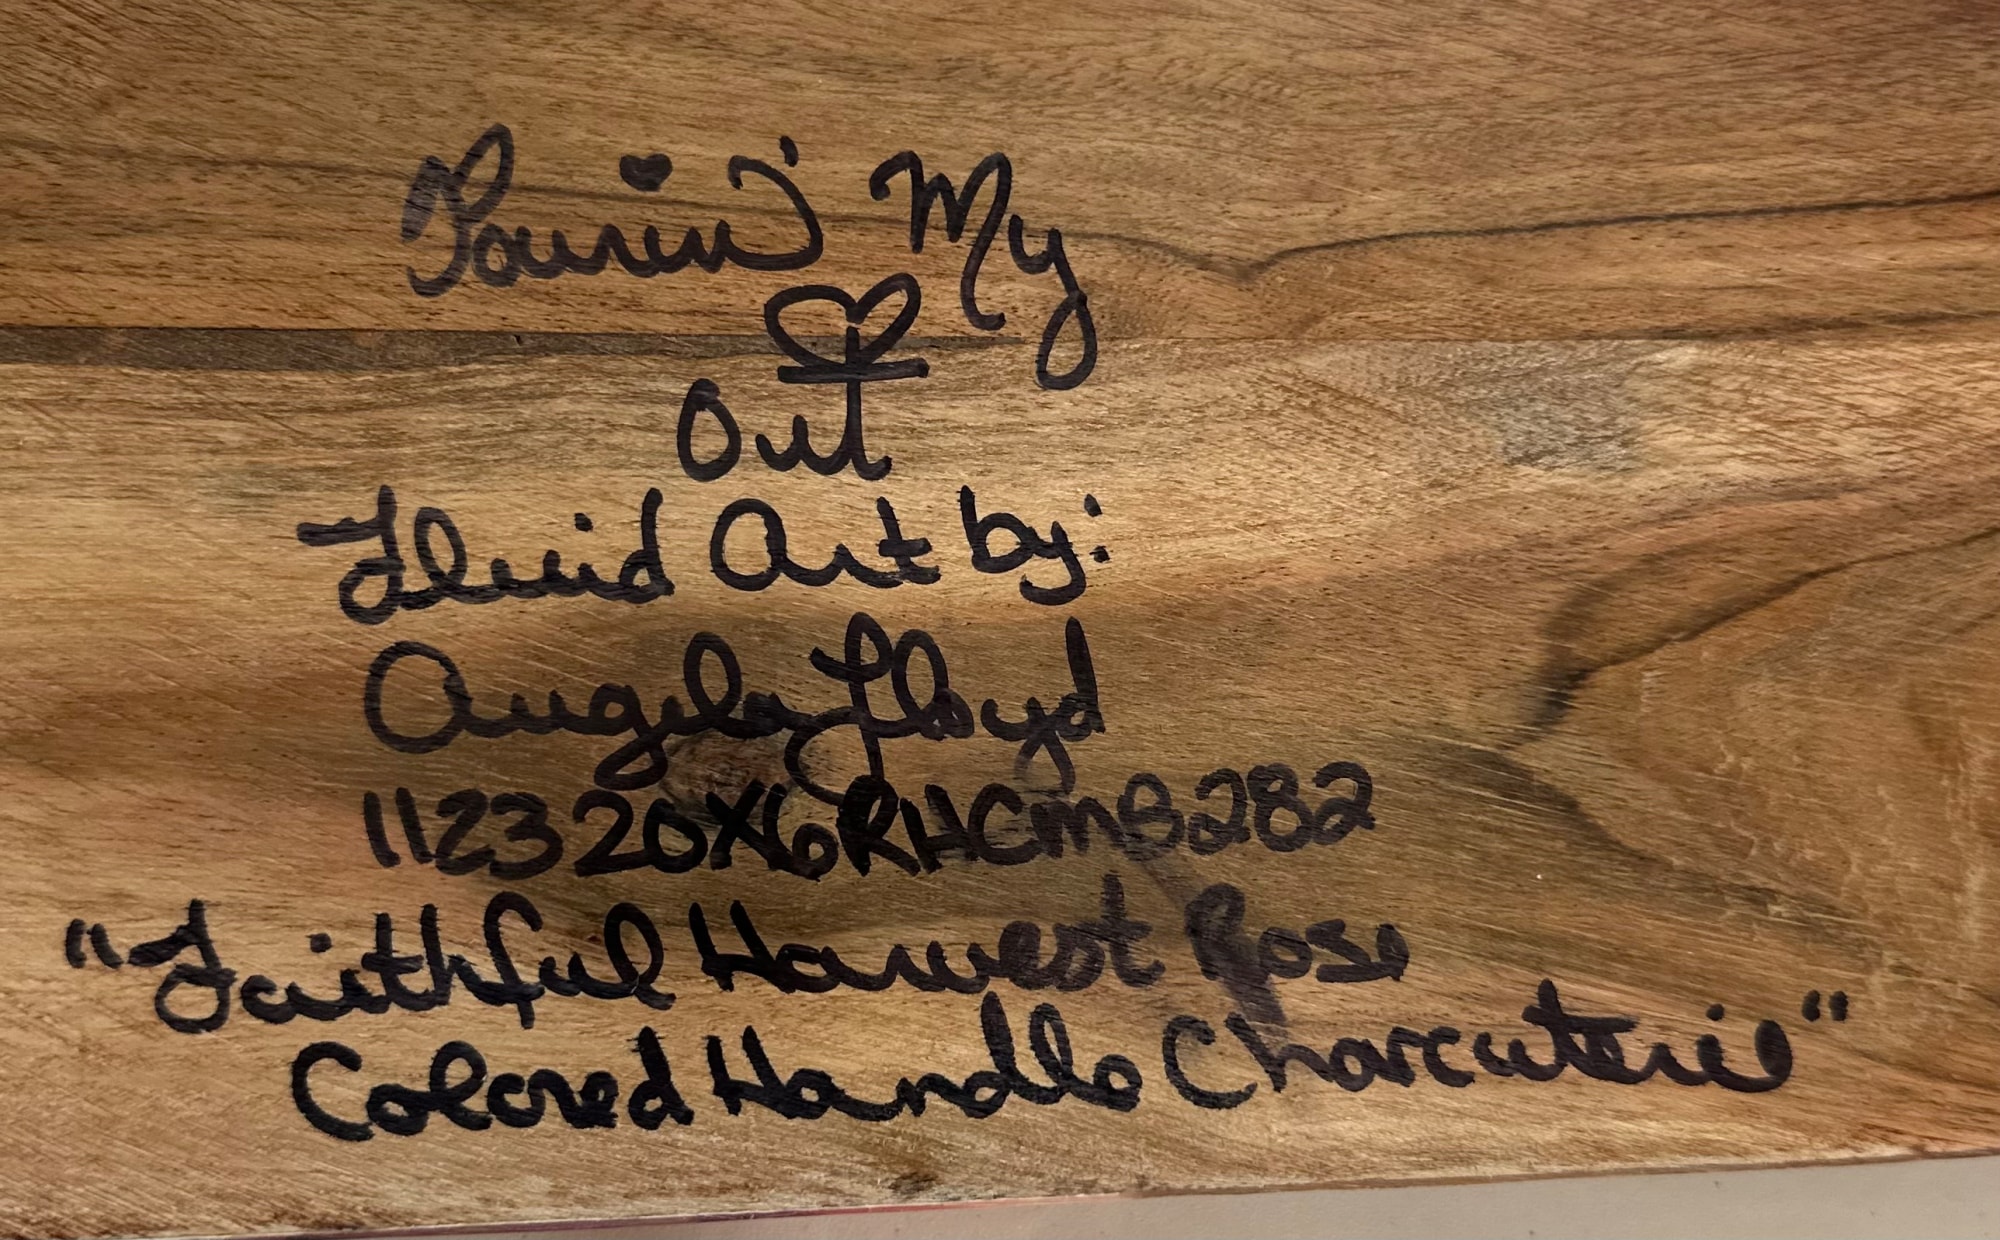 Pourin' My
♥
Out
Fluid Art by:
Angela Lloyd
112320X6RHCMB282
"Faithful Harvest Rose
Colored Handle Charcuterie"